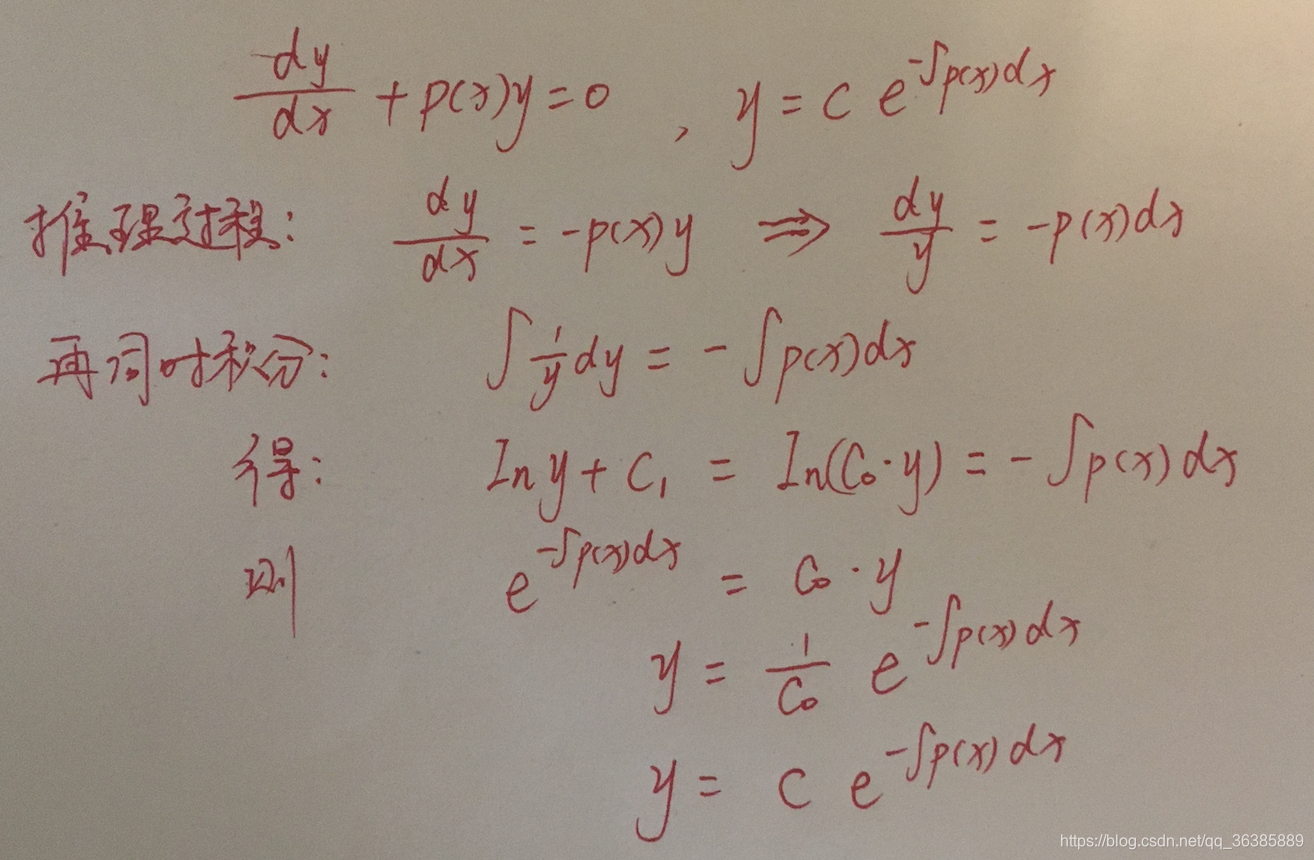 dy/dx + p(x)y = 0 , y = c e^{-∫p(x)dx}
推理过程: dy/dx = -p(x)y ⇒ dy/y = -p(x)dx
再同时积分: ∫ 1/y dy = - ∫p(x)dx
得: In y + C₁ = In(C₀·y) = - ∫p(x)dx
则 e^{-∫p(x)dx} = C₀·y
y = 1/C₀ e^{-∫p(x)dx}
y = C e^{-∫p(x)dx}
https://blog.csdn.net/qq_36385889